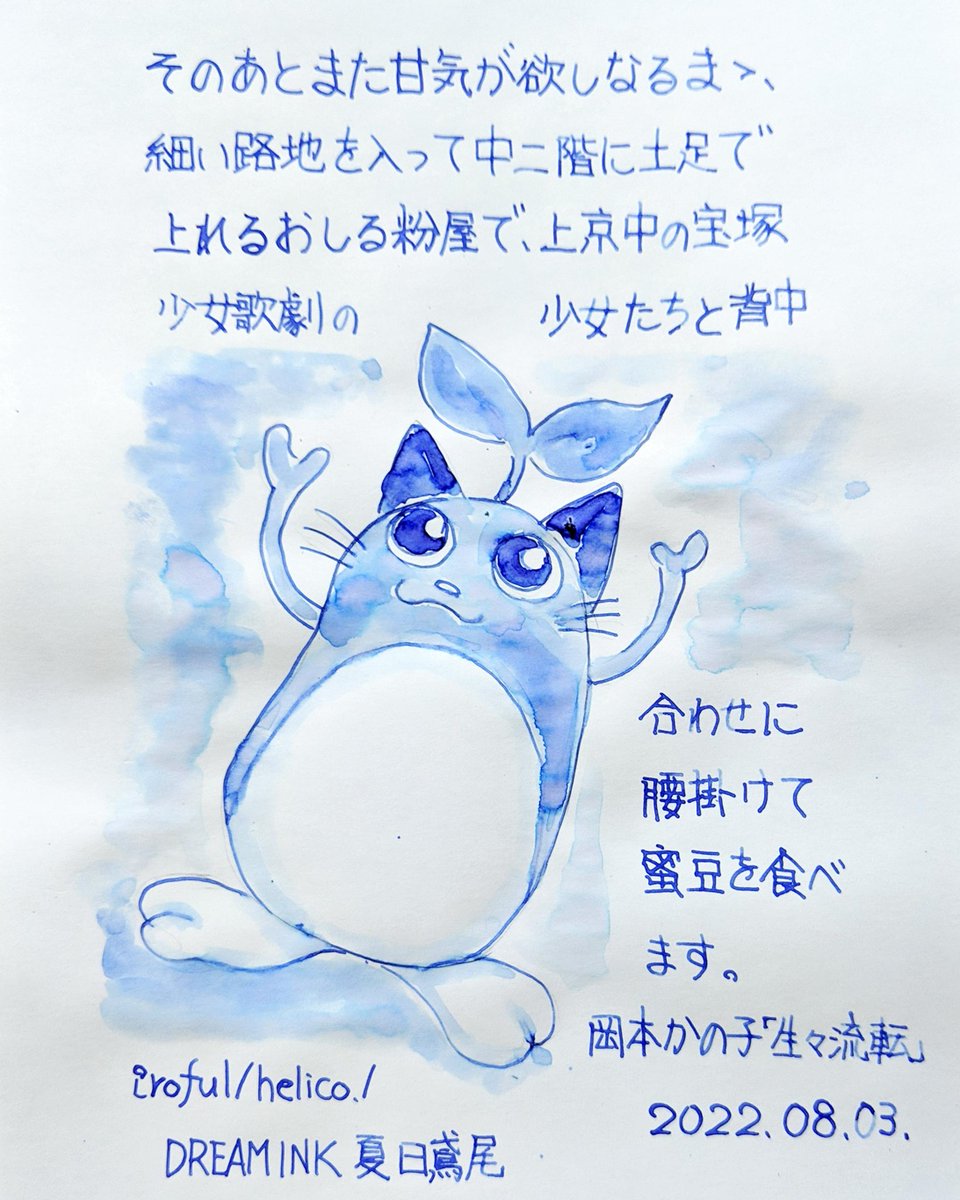 そのあとまた甘気が欲しなるまゝ、
細い路地を入って中二階に土足で
上れるおしる粉屋で、上京中の宝塚
少女歌劇の 少女たちと背中
合わせに
腰掛けて
蜜豆を食べ
ます。
岡本かの子「生々流転」
2022.08.03.
iroful/helico./
DREAM INK 夏日鳶尾